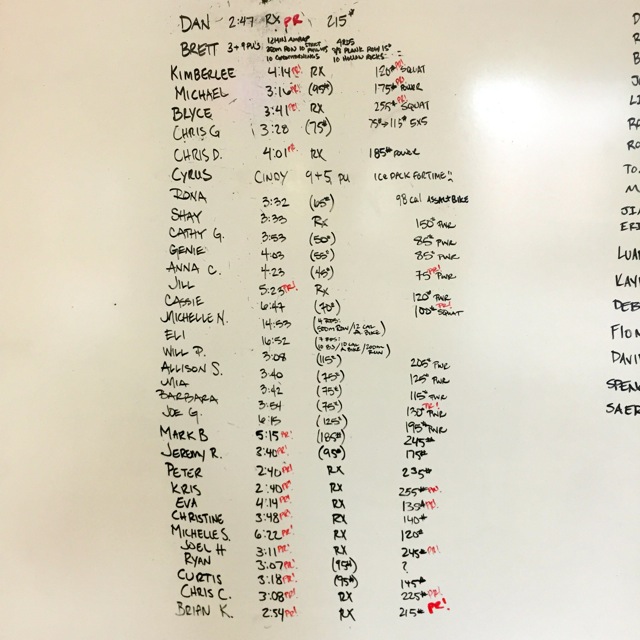 DAN 2:47 RX PR 215#
BRETT 3+9 PU'S 12MIN AMRAP 4RDS
KIMBERLEE 4:14 PR! RX 120# PR! SQUAT
MICHAEL 3:16 PR! (95#) 175# PR! POWER
BRYCE 3:41 PR! RX 255# PR! SQUAT
CHRIS G 3:28 (75#) 75#→115# 5X5
CHRIS D. 4:01 PR! RX 185# POWER
CYRUS CINDY 9+5 PU ICE PACK FOR TIME!!
RONA 3:32 (65#) 98 CAL ASSAULT BIKE
SHAY 3:33 RX 150# PWR
CATHY G. 3:53 (50#) 85# PWR
GENIE 4:03 (55#) 85# PWR
ANNA C. 4:23 (45#) 75# PR! PWR
JILL 5:25 PR! RX 120# PWR
CASSIE 6:47 (70#) 100# PR! SQUAT
MICHELLE N. 14:53 (4 RDS: 500M ROW/12 CAL A. BIKE)
ELI 16:52
WILL P. 3:08 (115#) 205# PWR
ALLISON S. 3:40 (75#) 125# PWR
3:42 (75#) 115# PWR
BARBARA 3:54 (75#) 130# PR! PWR
JOE G. 6:15 (125#) 195# PWR
MARK B 5:15 PR! (185#) 245#
JEREMY R. 2:40 PR! (95#) 175#
PETER 2:40 PR! RX 235#
KRIS 2:40 PR! RX 255# PR!
EVA 4:14 PR! RX 135# PR!
CHRISTINE 3:48 PR! RX 140#
MICHELLE S. 6:22 PR! RX 120#
JOEL H 3:11 PR! RX 245# PR!
RYAN 3:07 PR! (95#) ?
CURTIS 3:18 PR! (95#) 145#
CHRIS C. 3:08 PR! RX 225# PR!
BRIAN K. 2:54 PR! RX 215# PR!
D
R
B
J
LI
RA
RO
TO
M
JI
ERI
LUA
KAY
DEB
FION
DAVI
SPEN
SAER